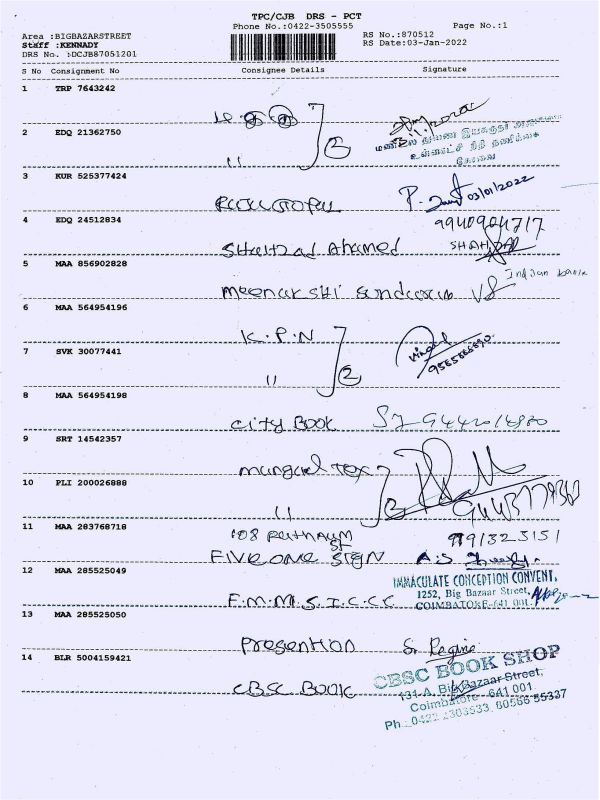 TPC/CJB DRS - PCT
Phone No.:0422-3505555 Page No.:1
Area :BIGBAZARSTREET RS No.:870512
Staff :KENNADY RS Date:03-Jan-2022
DRS No. :DCJB87051201
S No Consignment No Consignee Details Signature
1 TRP 7643242
2 EDQ 21362750
" 2
3 KUR 525377424
P. 03/01/2022
4 EDQ 24512834 9940904717
Shahzad Ahamed SHAHZAD
5 MAA 856902828 Indian Bank
meenakshi sundaram
6 MAA 564954196
K.P.N
7 SVK 30077441
" 2
8 MAA 564954198
City Book
9 SRT 14542357
mangal tex
10 PLI 200026888
" 2
11 MAA 283768718 108
FIVE ONE SIGN
12 MAA 285525049 IMMACULATE CONCEPTION CONVENT,
1252, Big Bazaar Street,
F.M.M.S.I.C.C.C COIMBATORE-641 001.
13 MAA 285525050
Presention Sr Regina
14 BLR 5004159421 CBSC BOOK SHOP
CBSC BOOK 131-A, Big Bazaar Street,
Coimbatore - 641 001
Ph.: 0422 2303533, 80566 55337